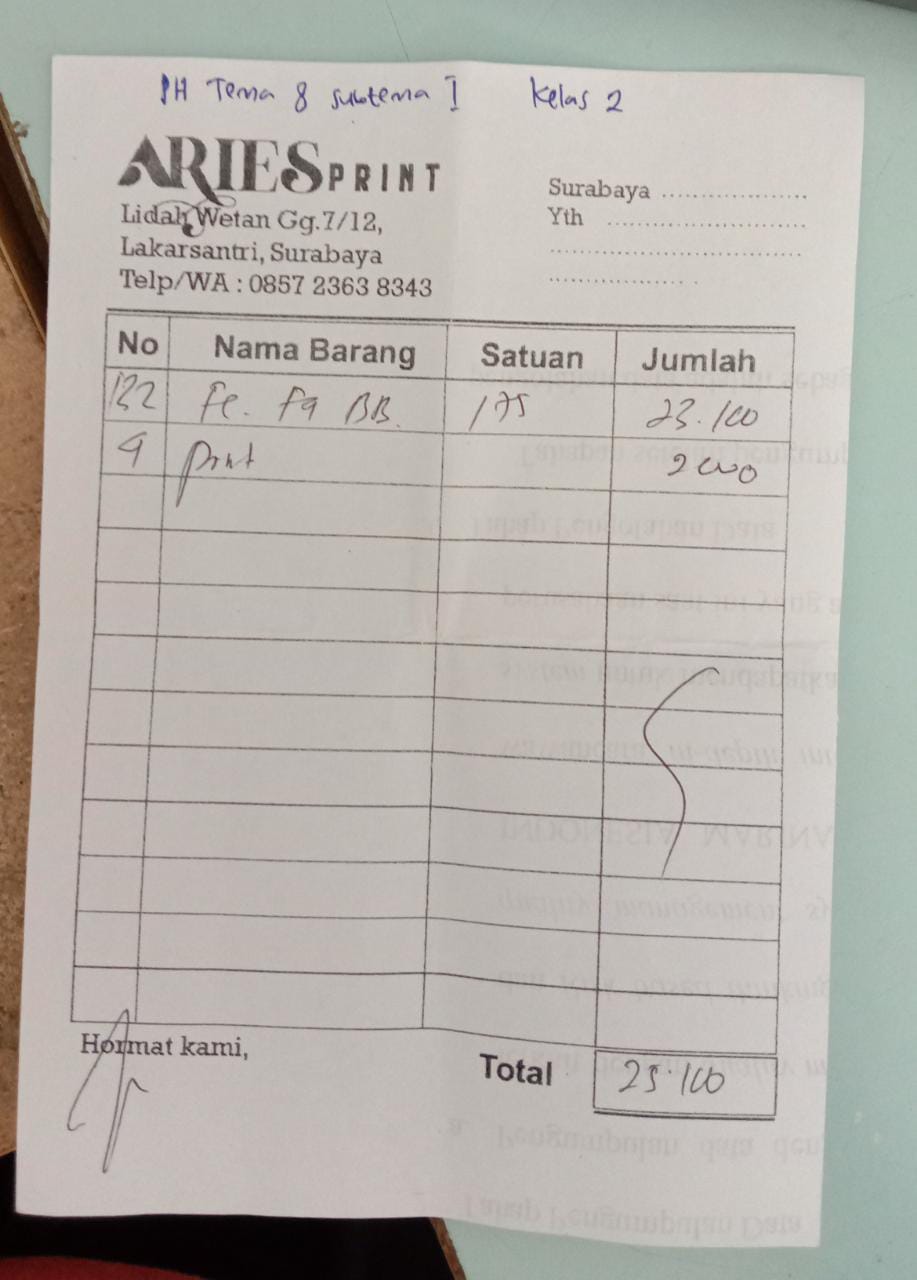 PH Tema 8 subtema I Kelas 2
ARIES PRINT
Lidah Wetan Gg.7/12,
Lakarsantri, Surabaya
Telp/WA : 0857 2363 8343
Surabaya ....................
Yth ...........................
No Nama Barang Satuan Jumlah
132 Fc. F4 BB. 175 23.100
4 print 2000
Hormat kami,
Total 25.100